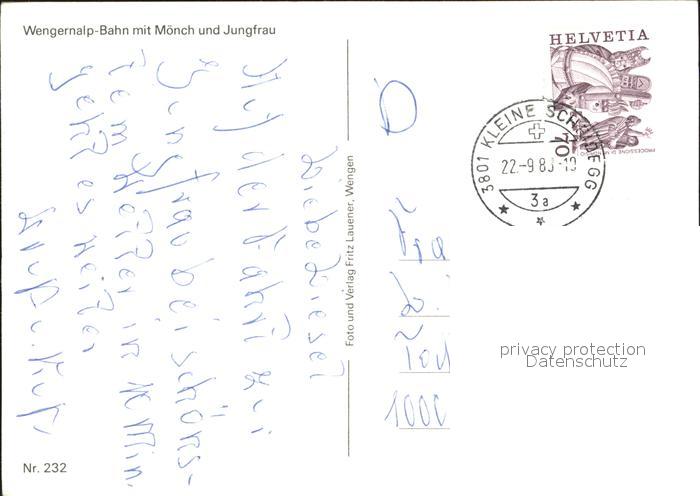 Wengernalp-Bahn mit Mönch und Jungfrau
HELVETIA
70
PROCESSIONE DI MENDRISIO
3801 KLEINE SCHEIDEGG
22.-9 83.-19
3a
Foto und Verlag Fritz Lauener, Wengen
Liebe Liesel
Auf der Fahrt zur
Jungfrau bei schöns-
tem Wetter in 10 Min.
geht es weiter
Gruß u. Kuß
Fra
1000
privacy protection
Datenschutz
Nr. 232